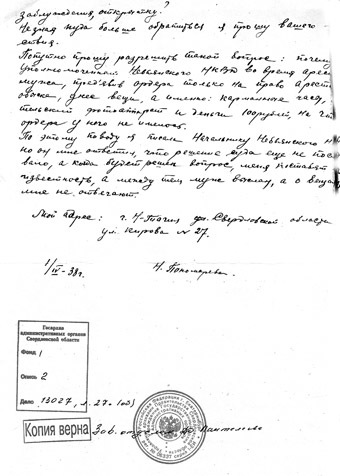 заблуждения, открытку?
Не зная куда больше обратиться я прошу вашего
ствия.
Попутно прошу разрешить такой вопрос: почему
уполномоченный Невьянского НКВД во время арес
мужа, предъявив ордера только на право ареста
вещи, а именно: карманные часы,
фотоаппарат и деньги 100 рублей, на что
ордера у него не имелось.
По этому поводу я писала Начальнику Невьянского НК
но он мне ответил, что решения суда еще не пос
вало, а когда будет решен вопрос, меня поставят
известность, а между тем муж выслан, а о вещах
мне не отвечают.
Мой адрес: г. Н-Тагил Свердловской области
ул. Кирова № 27.
1/IV-38г. Н. Пономарева
Госархив
административных органов
Свердловской области
Фонд 1
Опись 2
Дело 13027, л. 27 (об)
Копия верна
Зав. отделом